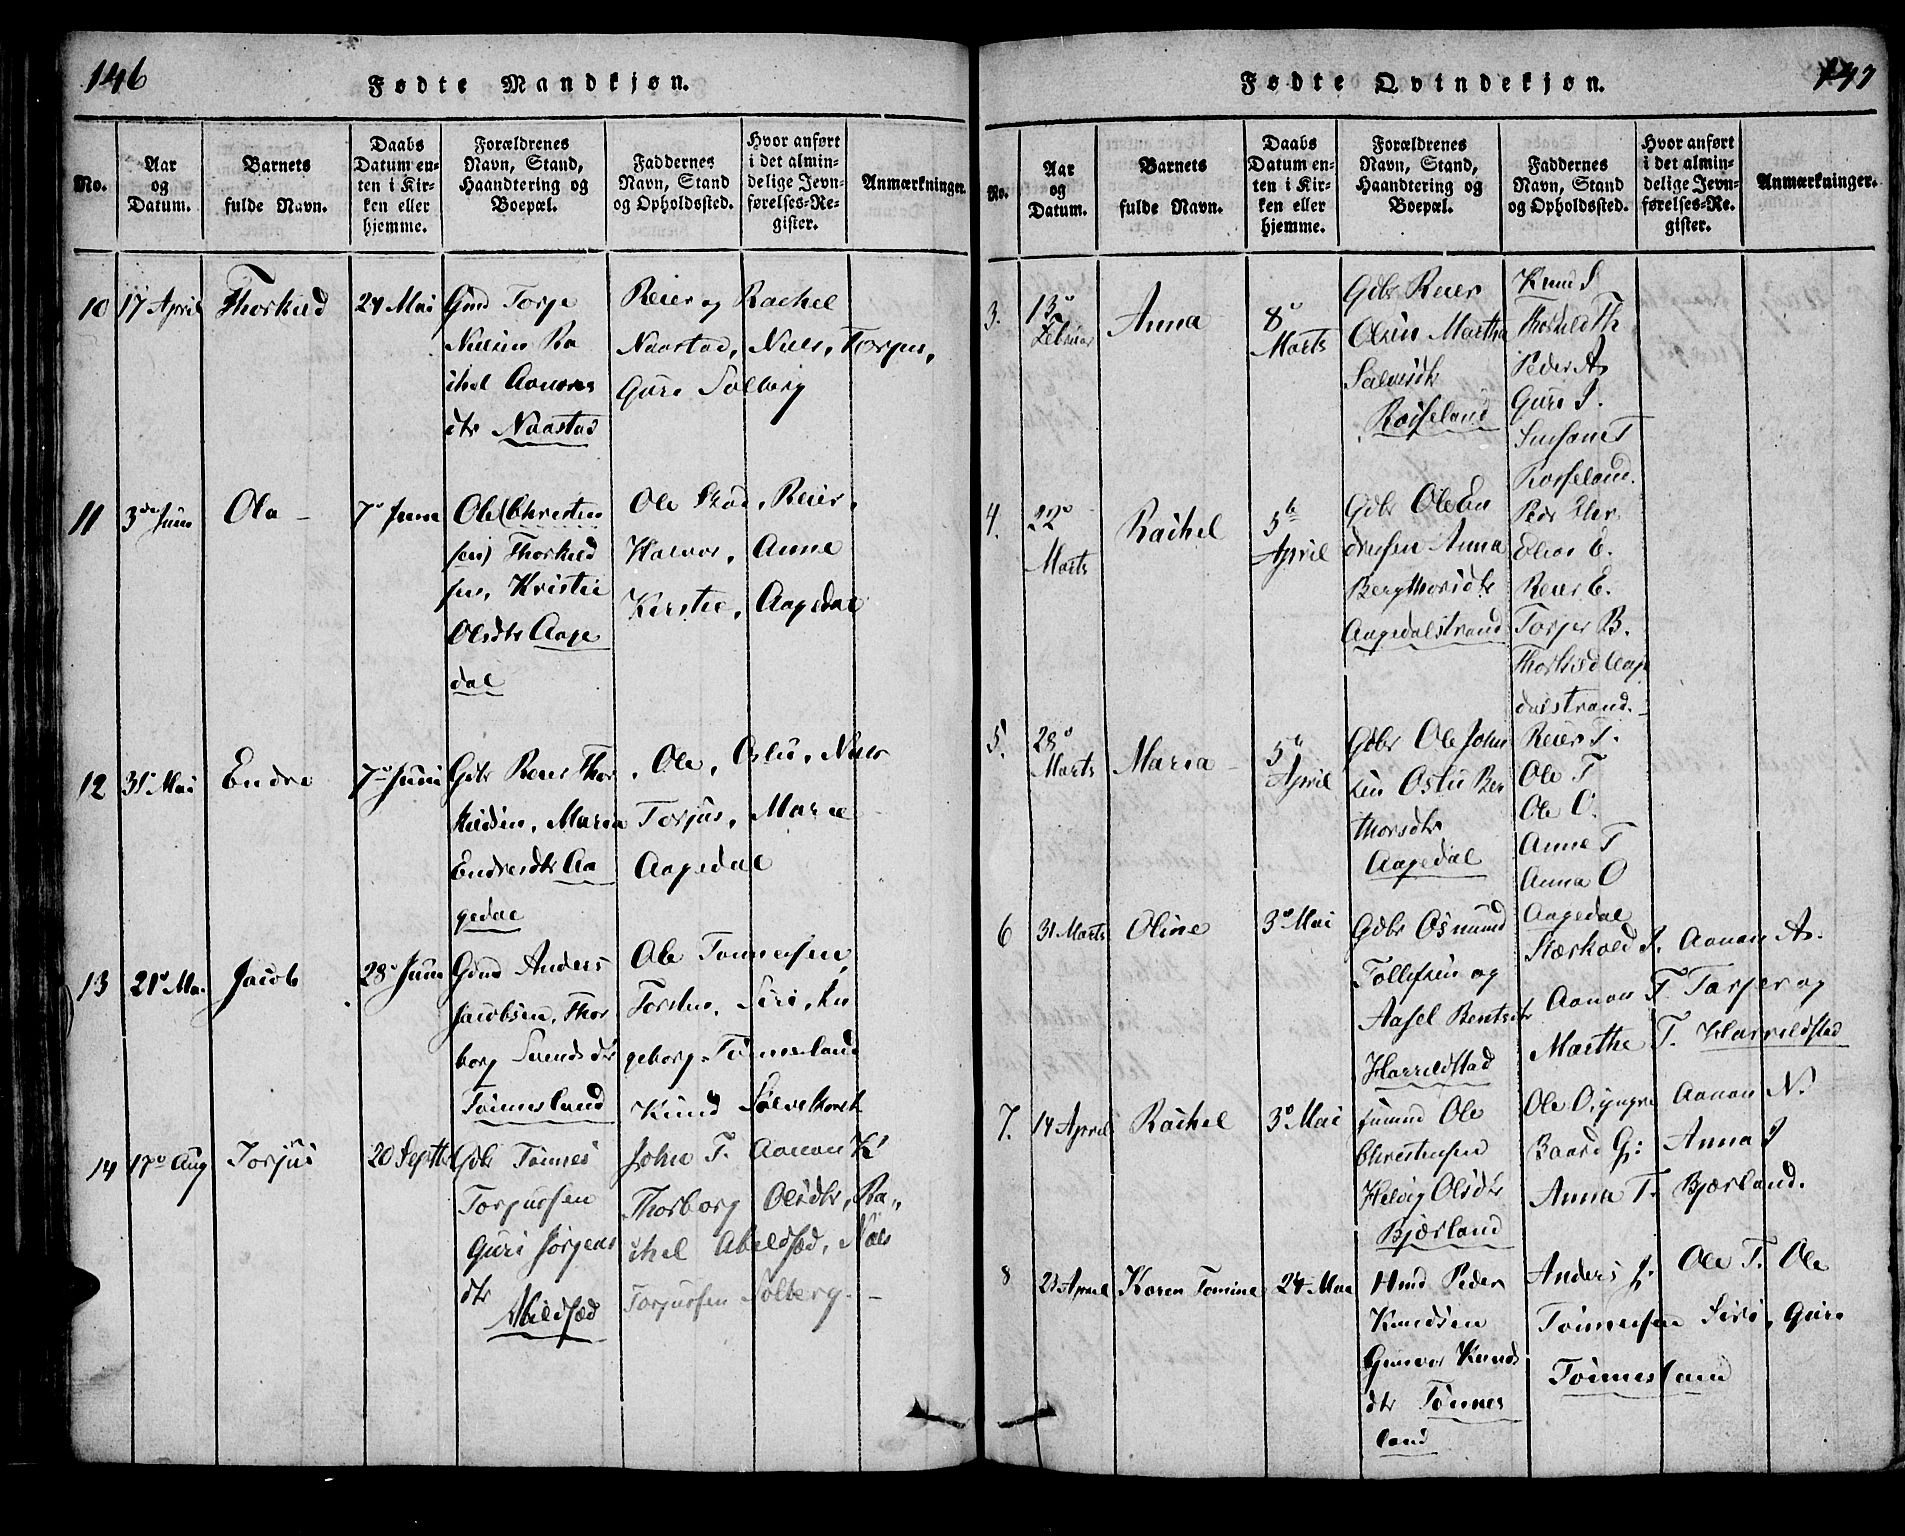 146
Fødte Mandkjøn.
No.
Aar og Datum.
Barnets fulde Navn.
Daabs Datum enten i Kirken eller hjemme.
Forældrenes Navn, Stand, Haandtering og Boepæl.
Faddernes Navn, Stand og Opholdssted.
Hvor anført i det almindelige Jevnførelses-Register.
Anmærkninger.
10 17 April Thorkild 24 Mai
Gmd Torje
Nielsen Ra
chel Aanons
dtr Naastad
Reier og Rachel
Naastad, Niels, Torjus,
Guri Solberg
11 3de Juni Ola - 7de Juni
Ole (Christen
sen) Thorkild
sen, Kristie
Olsdtr Aage
dal
Ole Skod, Reier,
Halvor, Anne
Kirstie, Aagedal
12 31 Mai Endre 7de Juni
Gdbr Reier Thor
kildsen, Maria
Endresdtr Aa
gedal
Ole, Oslu, Niels
Torjus, Marie
Aagedal
13 21 Mai Jacob 28 Juni
Gmd Anders
Jacobsen, Thor
borg Svends dtr
Tønnesland
Ole Tønnesen,
Torsten, Siri, In
geborg Tønnesland
Knud
14 17de Aug Torjus 20 Septbr
Gdbr Tønnes
Torjussen
Guri Jørgens
dtr
Abildsød
John T. Aanon K.
Thorborg Olsdtr, Ra
chel Abildsød, Niels
Torjussen Solberg. -
147
Fødte Qvindekjøn.
No.
Aar og Datum.
Barnets fulde Navn.
Daabs Datum enten i Kirken eller hjemme.
Forældrenes Navn, Stand, Haandtering og Boepæl.
Faddernes Navn, Stand og Opholdssted.
Hvor anført i det almindelige Jevnførelses-Register.
Anmærkninger.
3. 13 Februar Anna 8 Marts
Gdbr Reier
Olsen Martha
Salvesdtr
Rosseland
Knud S
Thorkild Th
Peder A
Guri S.
Susane T
Rosseland.
4. 22 Marts Rachel 5te April
Gdbr Ole En
dresen Anna
Bergthorsdtr
Aagedalstrand
Peder
Elias E.
Reier E.
Torjer B.
Thorkild Aage
dalstrand.
5. 28 Marts Maria - 5te April
Gdbr Ole John
sen Oslu Ber
thorsdtr
Aagedal
Reier T.
Ole T
Ole O.
Anne T
Anna O
Aagedal
6 31 Marts Oline 3 Mai
Gdbr Osmund
Tollefsen og
Aasel Bentsdtr
Harreldstad
Stærkold J. Aanon A.
Aanon T. Torjer og
Marthe T. Harreldstad
7. 14 April Rachel 3 Mai
Ole
Christensen
Helvig Olsdtr
Bjørland
Ole O. yngre Aanon N.
Baard G: Anna J
Anna T. Bjørland.
8 21 April Karen Tomine 24 Mai
Hmd Peder
Knudsen
Gunvor Knuds
dtr Tønnes
land
Anders J: Ole T. Ole
Tønnesen Siri, Guri
Tønnesland